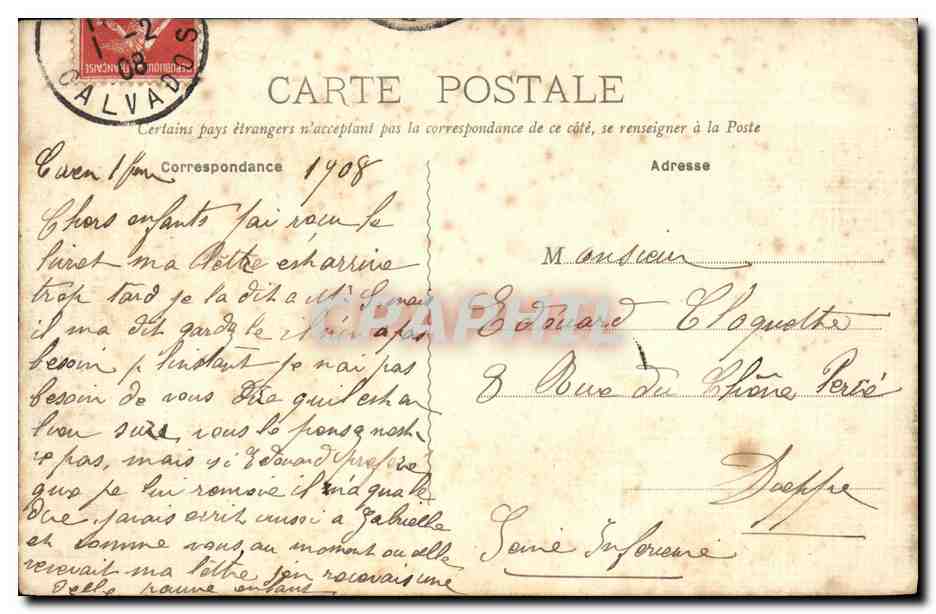 1 -2
08
CALVADOS
RÉPUBLIQUE FRANÇAISE
CARTE POSTALE
Certains pays étrangers n'acceptant pas la correspondance de ce côté, se renseigner à la Poste
Correspondance
Adresse
Caen 1 1908
Chers enfants j'ai reçu le
livret ma lettre est arrive
trop tard je la dit a Mr
il ma dit garde le il n'en a pas
besoin p l'instant je n'ai pas
besoin de vous dire quil est en
lieu sure, vous le pense nest
ce pas, mais si Edouard prefere
que je lui renvoie il n'a qua le
dire, javais ecrit aussi a Gabrielle
et comme vous, au moment ou elle
recevait ma lettre j'en recevais une
delle pauvre enfant
Monsieur
Edouard Cloquette
8 Rue du Chêne Percé
Dieppe
Seine Inferieure
CPAPHIL